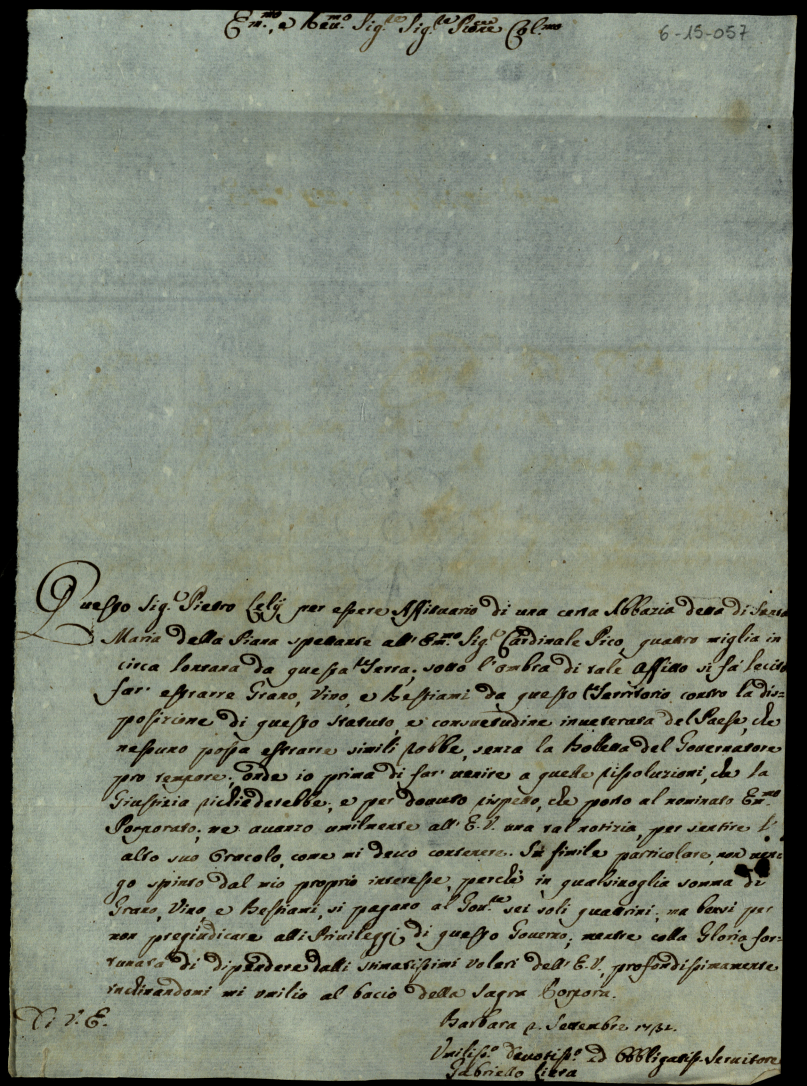 Em.mo, e Reu.mo Sig.re Sig.re Prone Col.mo
6-15-057
Questo Sig.r Pietro Lelij per essere Affituario di una certa Abbazia detta di Santa
Maria della Piana spettante all' Em.mo Sig.r Cardinale Pico, quattro miglia in
circa lontana da questa Terra; sotto l'ombra di tale Affitto si fà lecito
far' estrarre Grano, Vino, e Bestiami da questo Territorio contro la dis=
posizione di questo statuto, e consuetudine inueterata del Paese, che
nessuno possa estrarre simili robbe, senza la Bolletta del Gouernatore
pro tempore; onde io prima di far' uenire a quelle rissoluzioni, che la
Giustizia richiederebbe, e per douuto rispetto, che porto al nominato Em.mo
Porporato, ne auanzo umilmente all' E.V. una tal notizia, per sentire l'
alto suo Oracolo, come mi deuo contenere. In simile particolare, non uen=
go spinto dal mio proprio interesse, perche in qualsiuoglia somma di
Grano, Vino, e Bestiami, si pagano al Gou.re sei soli quattrini, ma bensì per
non pregiudicare alli Priuileggi di questo Gouerno; mentre colla Gloria for=
tunata di dipendere dalli stimatissimi uoleri dell' E.V. profondissimamente
inchinandomi mi umilio al bacio della Sagra Porpora.
Di V.E.
Barbara 2. Settembre 1731.
Vmiliss.o Deuotiss.o ed Obbligatiss. Seruitore
Gabriello